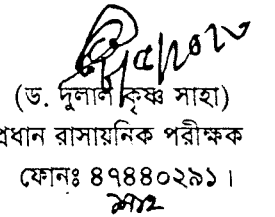 (ড. দুলাল কৃষ্ণ সাহা)
প্রধান রাসায়নিক পরীক্ষক
ফোনঃ ৪৭৪৪০২৯১।